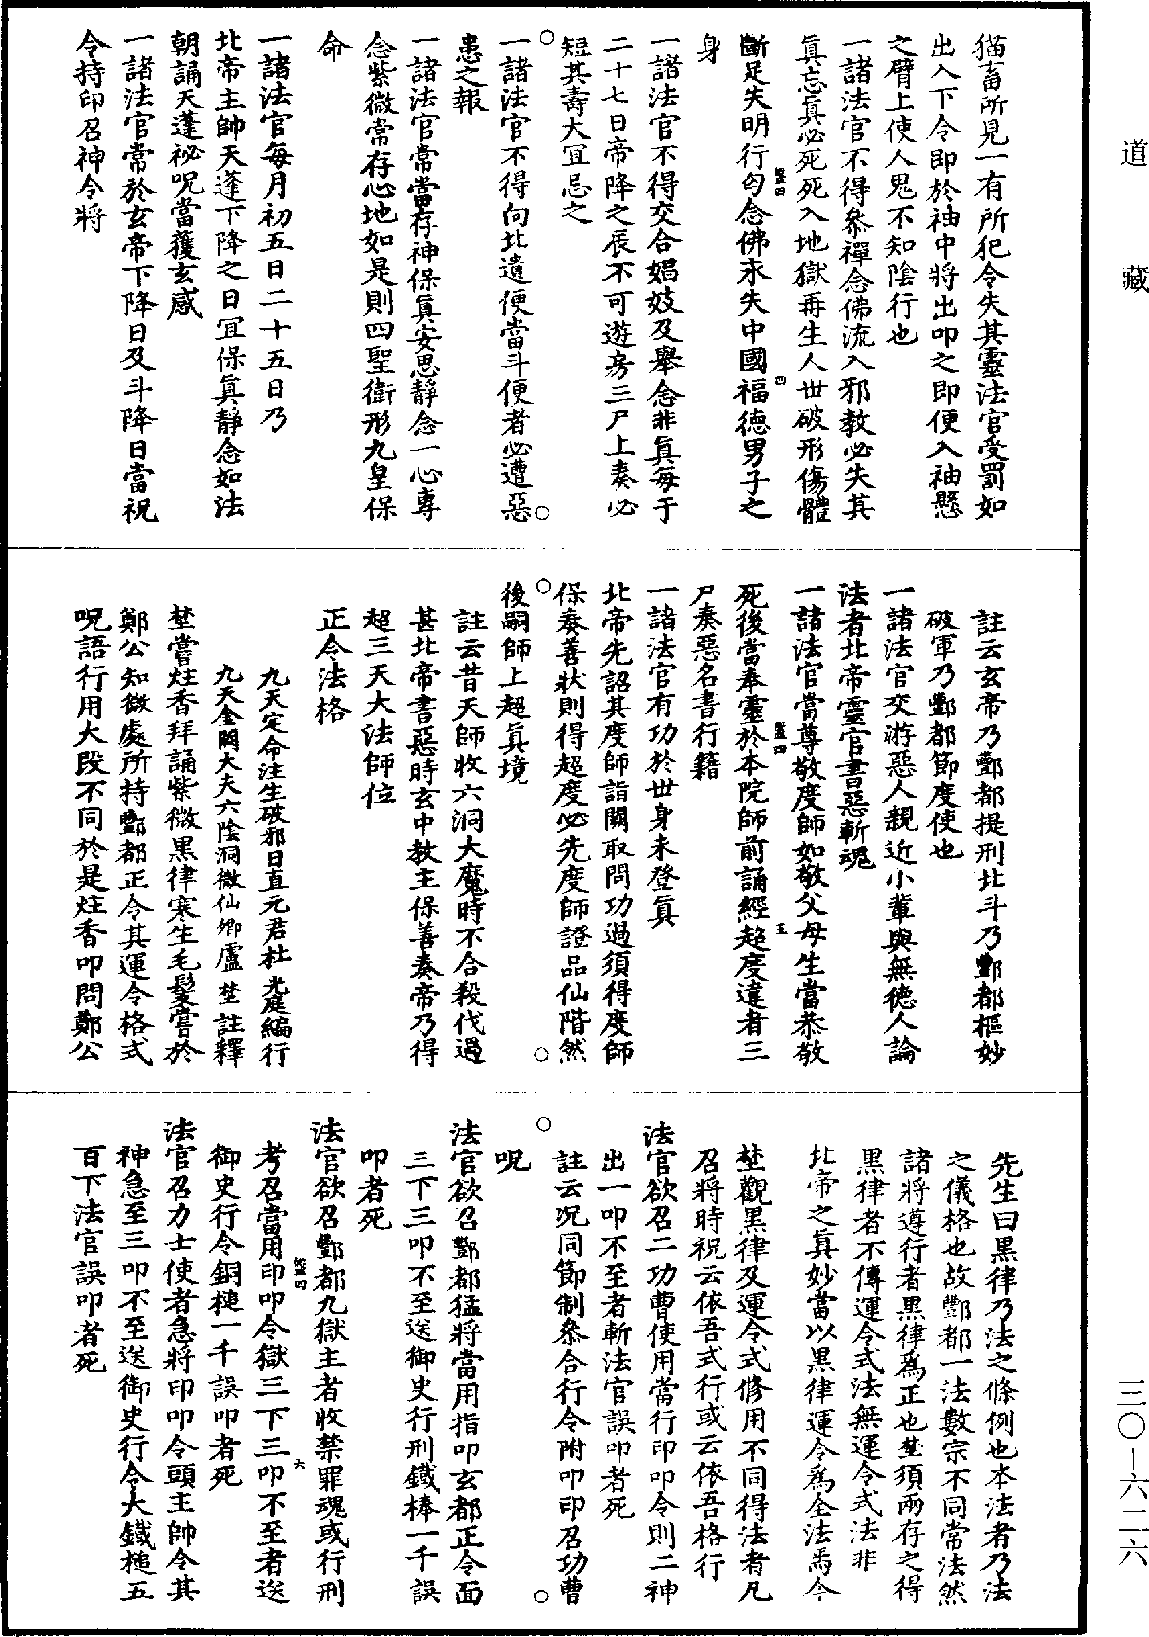 道藏
三〇—六二六
猫畜所見一有所犯令失其靈法官受罰如
出入下令即於袖中將出叩之即便入袖懸
之臂上使人鬼不知陰行也
一諸法官不得叅禪念佛流入邪教必失其
真忘真必死死入地獄再生人世破形傷體
斷足失明行匄念佛求失中國福德男子之
身
一諸法官不得交合娼妓及舉念非真每于
二十七日帝降之辰不可遊房三尸上奏必
短其壽大宜忌之
一諸法官不得向北遺便當斗便者必遭惡
恚之報
一諸法官常當存神保真安思靜念一心專
念紫微常存心地如是則四聖衛形九皇保
命
一諸法官每月初五日二十五日乃
北帝主帥天蓬下降之日宜保真靜念如法
朝誦天蓬祕呪當獲玄感
一諸法官常於玄帝下降日及斗降日當祝
令持印召神令將
註云玄帝乃酆都提刑北斗乃酆都樞妙
破軍乃酆都節度使也
一諸法官交游惡人親近小輩與無德人論
法者北帝靈官書惡斬魂
一諸法官當尊敬度師如敬父母生當恭敬
死後當奉靈於本院師前誦經超度違者三
尸奏惡名書行籍
一諸法官有功於世身未登真
北帝先詔其度師詣闕取問功過須得度師
保奏善狀則得超度必先度師證品仙階然
後嗣師上超真境
註云昔天師收六洞大魔時不合殺伐過
甚北帝書惡時玄中教主保善奏帝乃得
超三天大法師位
正令法格
九天定命注生破邪日直元君杜光庭編行
九天金闕大夫六陰洞微仙卿盧埜註釋
埜嘗炷香拜誦紫微黑律寒生毛髮嘗於
鄭公知微處所持酆都正令其運令格式
呪語行用大段不同於是炷香叩問鄭公
先生曰黑律乃法之條例也本法者乃法
之儀格也故酆都一法數宗不同常法然
諸將遵行者黑律為正也埜須兩存之得
黑律者不傳運令式法無運令式法非
北帝之真妙當以黑律運令為全法焉今
埜觀黑律及運令式修用不同得法者凡
召將時祝云依吾式行或云依吾格行
法官欲召二功曹使用當行印叩令則二神
出一叩不至者斬法官誤叩者死
註云況同節制叅合行令附叩印召功曹
呪
法官欲召酆都猛將當用指叩玄都正令面
三下三叩不至送御史行刑鐵棒一千誤
叩者死
法官欲召酆都九獄主者收禁罪魂或行刑
考召當用印叩令獄三下三叩不至者送
御史行令銅槌一千誤叩者死
法官召力士使者急將印叩令頭主帥令其
神急至三叩不至送御史行令大鐵槌五
百下法官誤叩者死